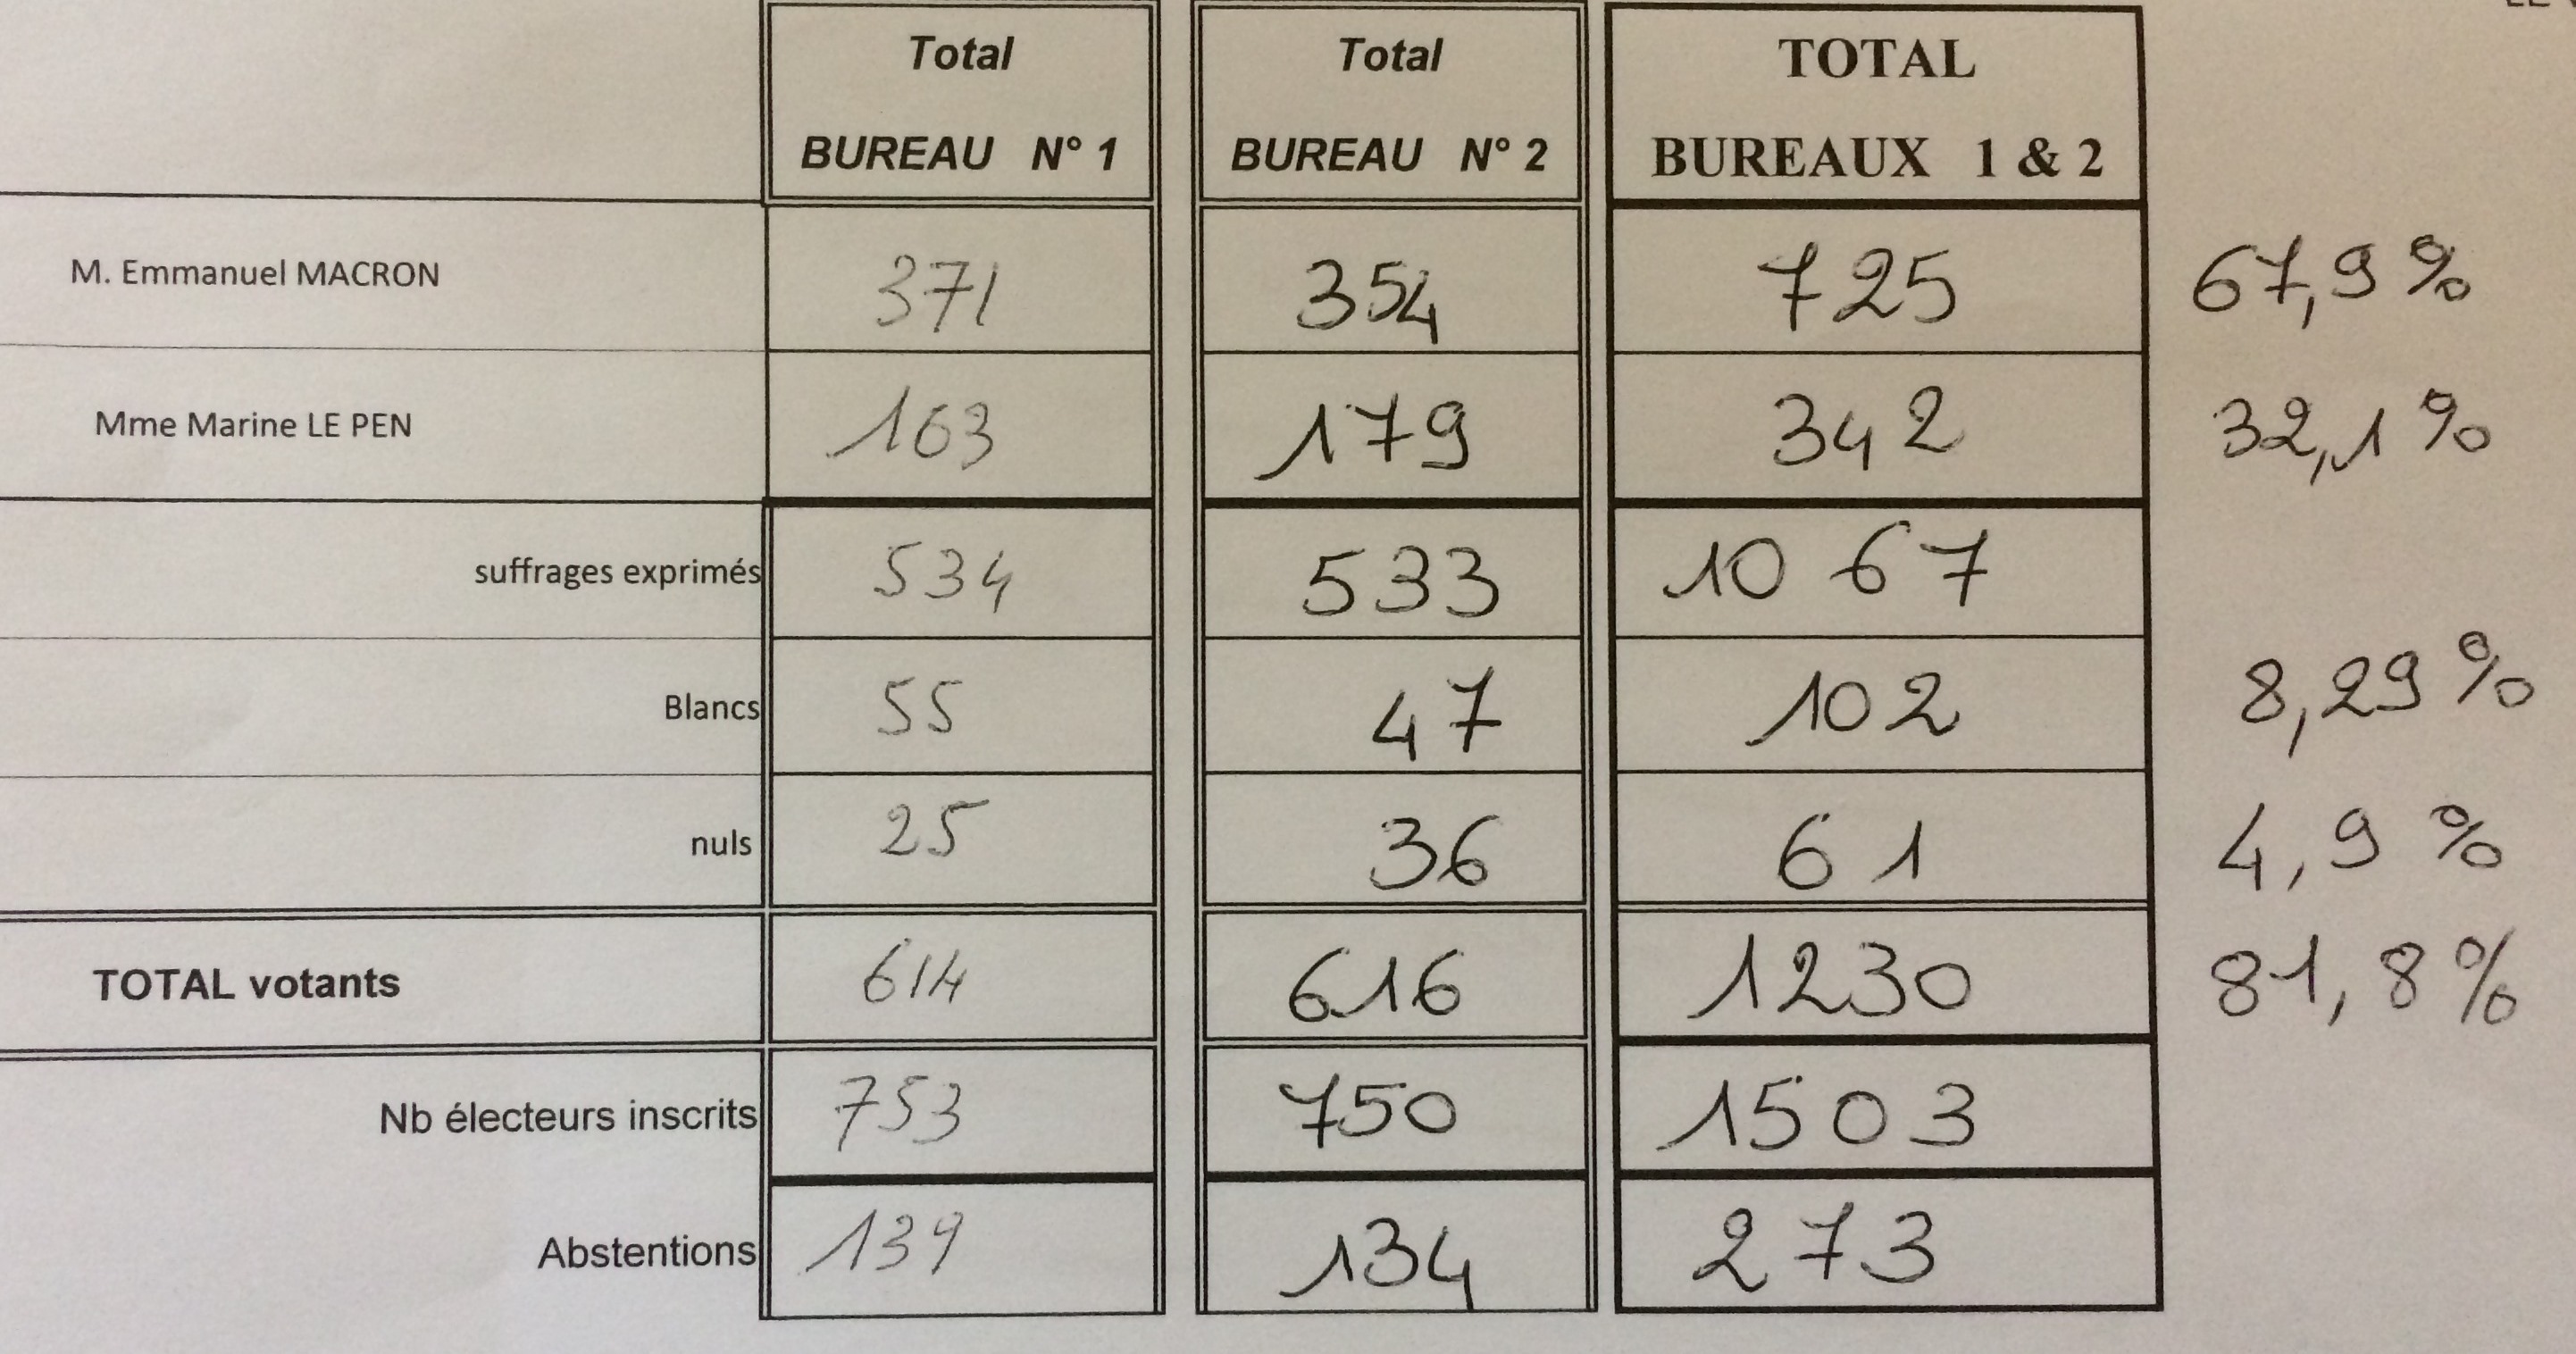 Total Total TOTAL
BUREAU N° 1 BUREAU N° 2 BUREAUX 1 & 2
M. Emmanuel MACRON 371 354 725 67,9 %
Mme Marine LE PEN 163 179 342 32,1 %
suffrages exprimés 534 533 10 67
Blancs 55 47 102 8,29 %
nuls 25 36 61 4,9 %
TOTAL votants 614 616 1230 81,8 %
Nb électeurs inscrits 753 750 1503
Abstentions 139 134 273